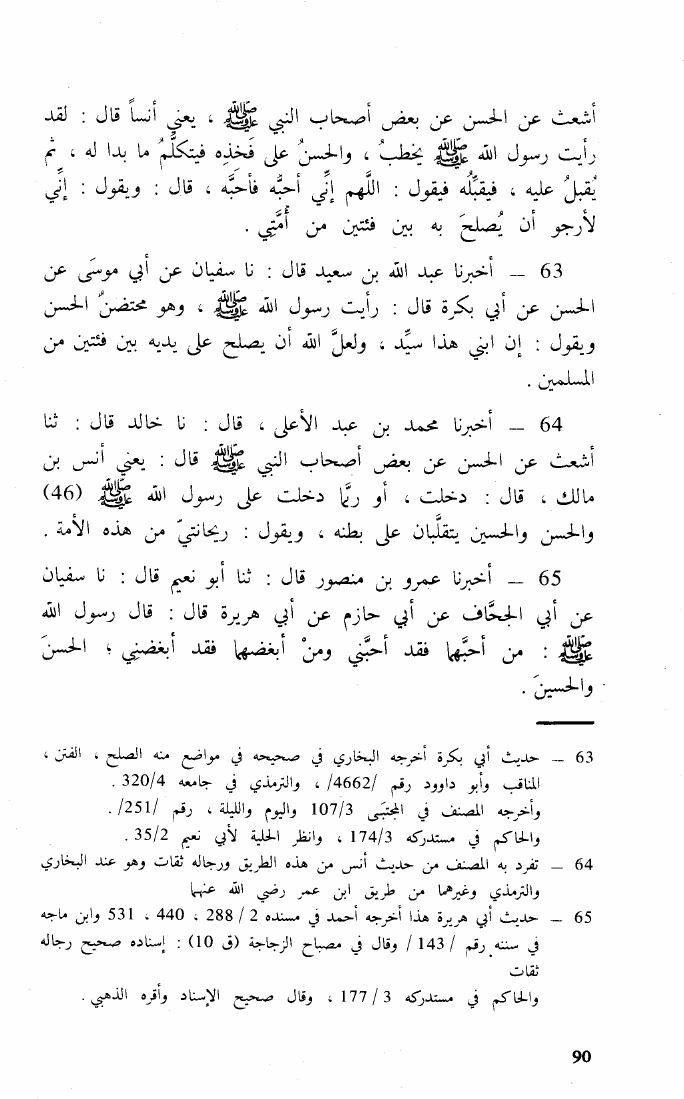 أشعث عن الحسن عن بعض أصحاب النبي ﷺ ، يعني أنساً قال : لقد
رأيت رسول الله ﷺ يخطبُ ، والحسنُ على فَخِذِه فيتكلَّمُ ما بدا له ، ثم
يُقبلُ عليه ، فيقبِّلُه فيقول : اللَّهم إنِّي أحبُّه فأحبَّه ، قال : ويقول : إنِّي
لأرجو أن يُصلحَ به بين فئتين من أُمَّتِي .
63 — أخبرنا عبد الله بن سعيد قال : نا سفيان عن أبي موسَى عن
الحسن عن أبي بكرة قال : رأيت رسول الله ﷺ ، وهو محتضنٌ الحسن
ويقول : إن ابني هذا سيِّد ، ولعلَّ الله أن يصلح على يديه بين فئتين من
المسلمين .
64 — أخبرنا محمد بن عبد الأعلى ، قال : نا خالد قال : ثنا
أشعث عن الحسن عن بعض أصحاب النبي ﷺ قال : يعني أنس بن
مالك ، قال : دخلت ، أو ربَّما دخلت على رسول الله ﷺ (46)
والحسن والحسين يتقلَّبان على بطنه ، ويقول : ريحانتيّ من هذه الأمة .
65 — أخبرنا عمرو بن منصور قال : ثنا أبو نعيم قال : نا سفيان
عن أبي الجحَّاف عن أبي حازم عن أبي هريرة قال : قال رسول الله
ﷺ : من أحبَّهما فقد أحبَّني ومنْ أبغضهما فقد أبغضنِي ؛ الحسنَ
والحسينَ .
63 — حديث أبي بكرة أخرجه البخاري في صحيحه في مواضع منه الصلح ، الفتن ،
المناقب وأبو داوود رقم /4662/ ، والترمذي في جامعه 320/4 .
وأخرجه المصنف في المجتبَى 107/3 واليوم والليلة ، رقم /251/.
والحاكم في مستدركه 174/3 ، وانظر الحلية لأبي نعيم 35/2 .
64 — تفرد به المصنف من حديث أنس من هذه الطريق ورجاله ثقات وهو عند البخاري
والترمذي وغيرهما من طريق ابن عمر رضي الله عنهما
65 — حديث أبي هريرة هذا أخرجه أحمد في مسنده 2 / 288 ، 440 ، 531 وابن ماجه
في سننه رقم / 143 / وقال في مصباح الزجاجة (ق 10) : إسناده صحيح رجاله
ثقات
والحاكم في مستدركه 3 / 177 ، وقال صحيح الإسناد وأقره الذهبي .
90